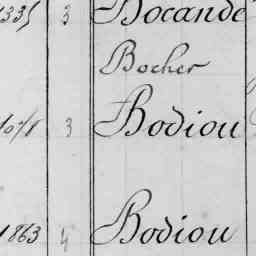 1335 3 Bocande
Bocher
3 Bodiou
1863 4 Bodiou